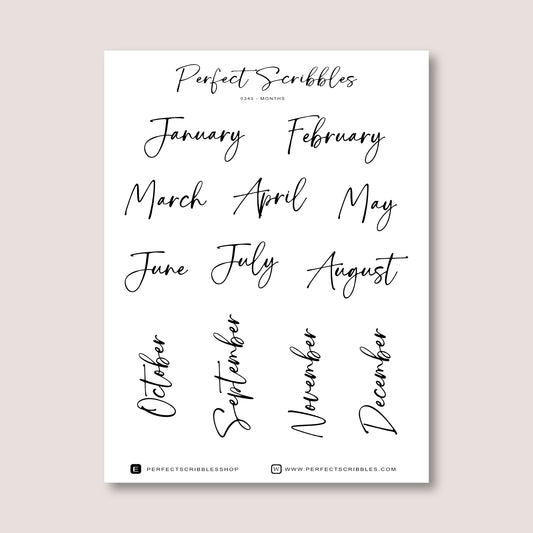 Perfect Scribbles
0343 - MONTHS
January February
March April May
June July August
October September November December
E PERFECTSCRIBBLESSHOP W WWW.PERFECTSCRIBBLES.COM